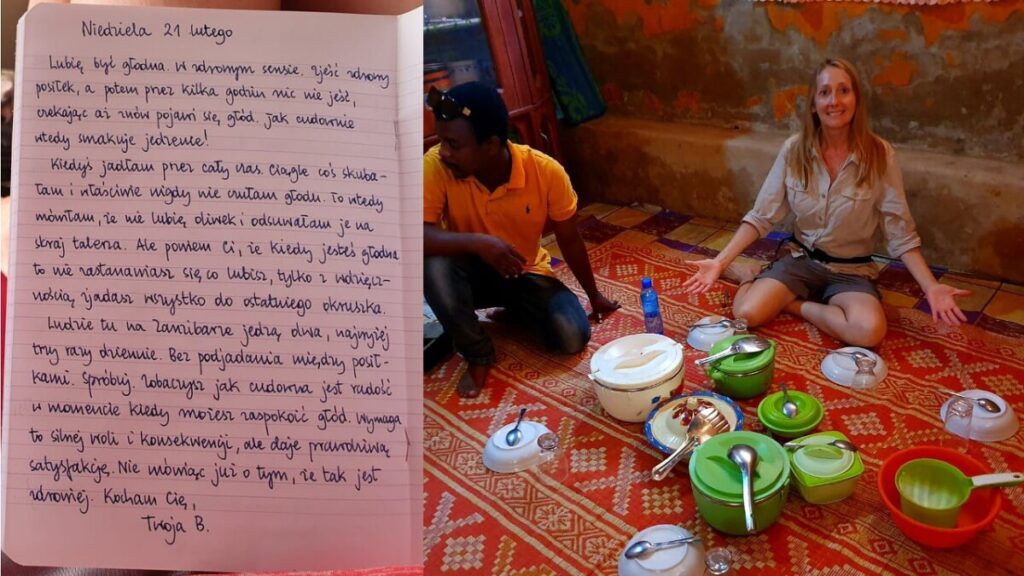 Niedziela 21 lutego
Lubię być głodna. W zdrowym sensie. Zjeść zdrowy
posiłek, a potem przez kilka godzin nic nie jeść,
czekając aż znów pojawi się głód. Jak cudownie
wtedy smakuje jedzenie!
Kiedyś jadłam przez cały czas. Ciągle coś skuba-
łam i właściwie nigdy nie czułam głodu. To wtedy
mówiłam, że nie lubię oliwek i odsuwałam je na
skraj talerza. Ale powiem Ci, że kiedy jesteś głodna
to nie zastanawiasz się co lubisz, tylko z wdzięcz-
nością zjadasz wszystko do ostatniego okruszka.
Ludzie tu na Zanzibarze jedzą dwa, najwyżej
trzy razy dziennie. Bez podjadania między posił-
kami. Spróbuj. Zobaczysz jak cudowna jest radość
w momencie kiedy możesz zaspokoić głód. Wymaga
to silnej woli i konsekwencji, ale daje prawdziwą
satysfakcję. Nie mówiąc już o tym, że tak jest
zdrowiej. Kocham Cię,
Twoja B.